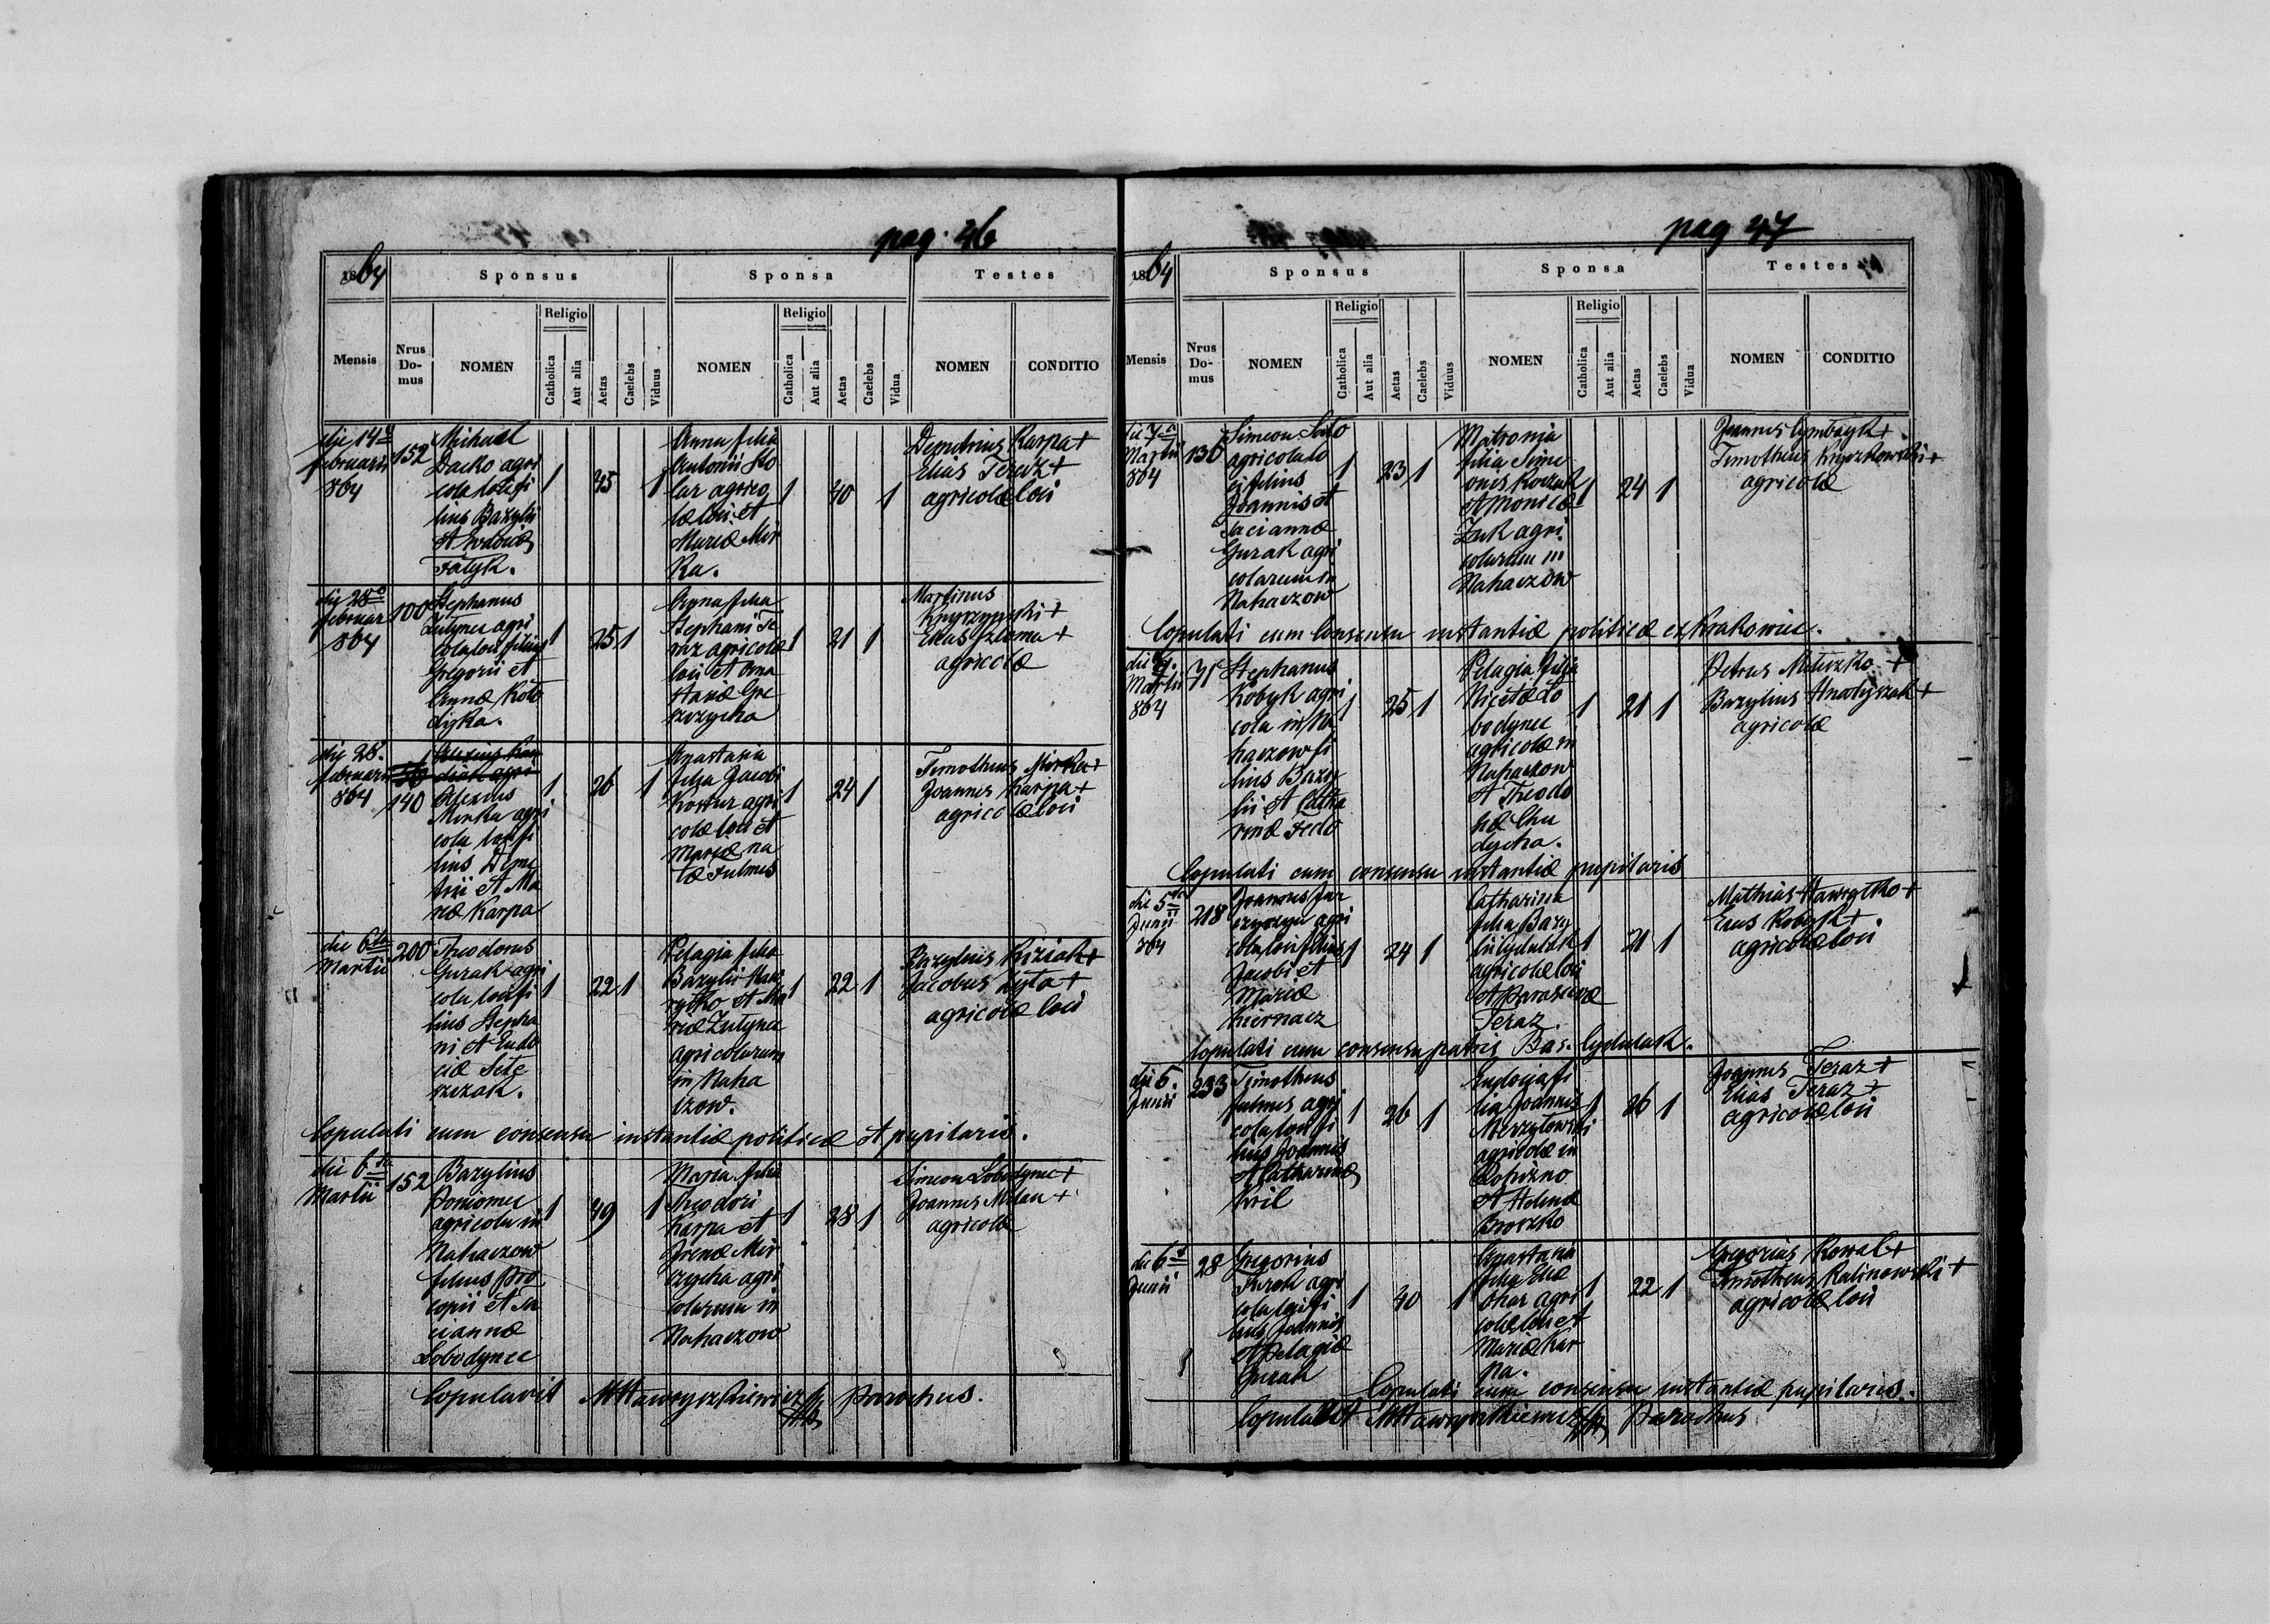 pag. 46
1864
Sponsus
Sponsa
Testes
Mensis
Nrus Do-mus
NOMEN
Religio
Catholica
Aut alia
Aetas
Caelebs
Viduus
NOMEN
Religio
Catholica
Aut alia
Aetas
Caelebs
Vidua
NOMEN
CONDITIO
die 14
februarii
864
152
Michael
agri
cola loci fi
lius Bazylii
et
Fatyk.
1
45
1
Anna filia
Antonii Sko
lar agrico
læ loci et
Mariæ Mir
ka.
1
40
1
Demetrius Karpa +
Elias Teraz +
agricolæ loci
die 28
februar
864
100
Stephanus
Zutynec agri
cola loci filius
Gregorii et
Annæ Koło
dijka.
1
25
1
Anna filia
Stephani Te
raz agricolæ
loci et Ana
stasiæ Gre
szczycha
1
21
1
Martinus
Knyrzynski +
Elias +
agricolæ
die 28.
februarii
864
140
Alexius
Mirka agri
cola loci fi
lius Deme
trii et Ma
riæ Karpa
1
26
1
Anastasia
filia Jacobi
agri
colæ loci et
Mariæ na
tæ Fulmes
1
24
1
Timotheus Mirka +
Joannes Karpa +
agricolæ loci
die 6ta
Martii
200
Theodorus
Gurak agri
cola loci fi
lius Stepha
ni et Eudo
ciæ Sete
szczak.
1
22
1
Pelagia filia
Bazylii Haw
ryłko et Ma
riæ Zutynec
agricolarum
in Naha
czow.
1
22
1
Bazylius Kiziak +
Jacobus Łyta +
agricolæ loci
Copulati cum consensu instantiæ politicæ et pupilaris.
die 6ta
Martii
152
Bazylius
Poniomec
agricola in
Nahaczow
filius Pro
copii et Ta
ciannæ
Łobodynec
1
49
1
Maria filia
Theodori
Karpa et
Irenæ Mir
czycha agri
colarum in
Nahaczow
1
28
1
Simeon Łobodynec +
Joannes Milan +
agricolæ
Copulavit MHawryszkiewicz parochus.
pag 47
1864
Sponsus
Sponsa
Testes
Mensis
Nrus Do-mus
NOMEN
Religio
Catholica
Aut alia
Aetas
Caelebs
Viduus
NOMEN
Religio
Catholica
Aut alia
Aetas
Caelebs
Vidua
NOMEN
CONDITIO
die 7
Martii
864
130
Simeon
agricola lo
ci filius
Joannis et
Taciannæ
Gurak agri
colarum in
Nahaczow
1
23
1
Matronia
filia Sime
onis Kozak
et Monicæ
Zuk agri
colarum in
Nahaczow
1
24
1
Joannes Cymbryk +
Timotheus Knyszkowski +
agricolæ
Copulati cum consensu instantiæ politicæ ex Krakowiec.
die 7.
Martii
864
71
Stephanus
Kobyk agri
cola in Na
haczow fi
lius Bazy
lii et Catha
rinæ Fedo
1
25
1
Pelagia filia
Nicetæ Ło
bodynec
agricolæ in
Nahaczow
et Theodo
siæ Chu
dycha.
1
21
1
Petrus Meteczko +
Bazylius Hnadyszak +
agricolæ
Copulati cum consensu instantiæ pupilaris
die 5ta
Junii
864
218
Joannes Jur
agri
cola loci filius
Jacobi et
Mariæ
Kiernacz
1
24
1
Catharina
filia Bazy
lii Cydulak
agricolæ loci
et Parasievæ
Teraz.
1
21
1
Mathias Hawryłko +
Elias Kobyk +.
agricolæ loci
Copulati cum consensu patris Bas. Cydulak.
die 5.
Junii
233
Timotheus
Fulmes agri
cola loci fi
lius Joannis
et Catharinæ
Kril
1
26
1
Eudocia fi
lia Joannis
agricolæ in
et Helenæ
1
26
1
Joannes Teraz +
Elias Teraz +
agricolæ loci
die 6ta
Junii
28
Gregorius
Turok agri
cola loci fi
lius Joannis
et Pelagiæ
Gurak
1
40
1
Anastasia
filia Eliæ
agri
colæ loci et
Mariæ Kar
pa.
1
22
1
Gregorius Kowal +
Timotheus Kalinowski +
agricolæ loci
Copulati cum consensu instantiæ pupilaris.
Copulavit MHawryszkiewicz Parochus